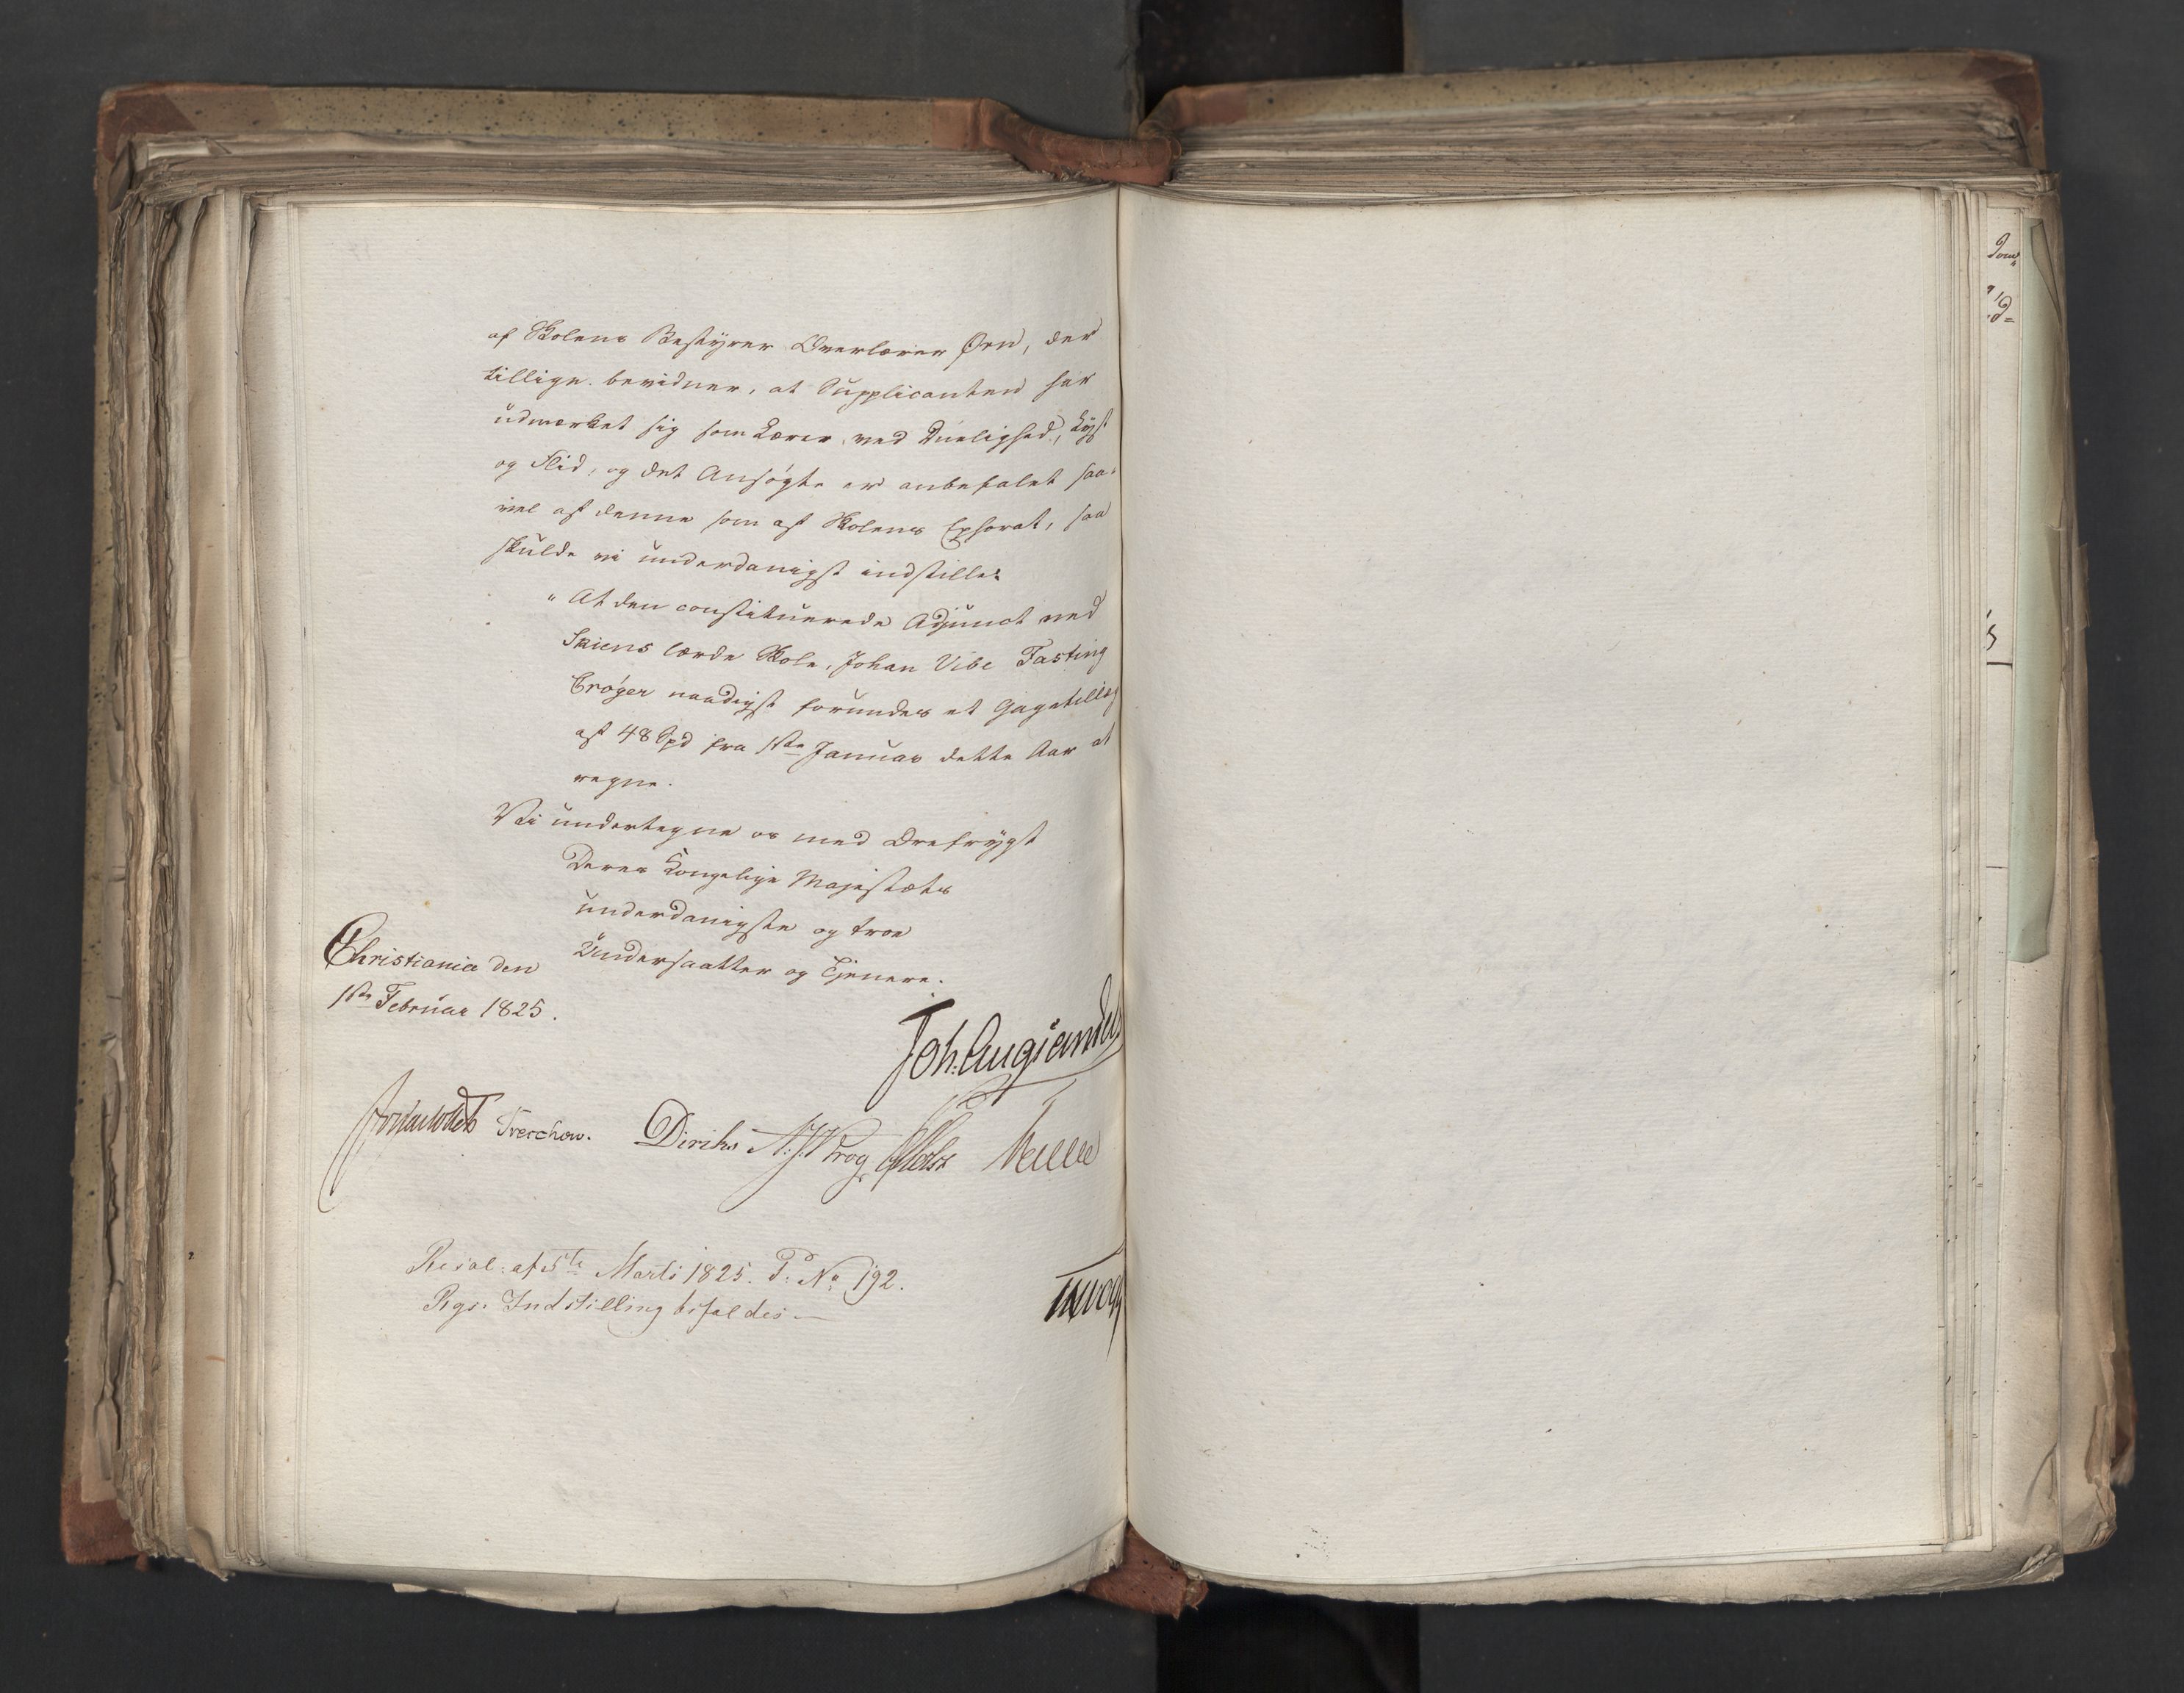 af Skolens Bestyrer Overlærer Ørn, der
tillige bevidner, at Supplicanten har
udmærket sig som Lærer ved Duelighed, Lyst
og Flid, og det Ansøgte er anbefalet saa-
vel af denne som af Skolens Ephorat, saa
skulde vi underdanigst indstille:
"At den constituerede Adjunct ved
Skiens lærde Skole, Johan Vibe Fasting
Crøger naadigst forundes et Gagetillæg
af 48 Spd fra 1ste Januar dette Aar at
regne.
Vi undertegne os med Ærefrygt
Deres Kongelige Majestæts
underdanigste og troe
Undersaatter og Tjenere.
Christiania den
1ste Februar 1825.
Joh. Aug. Sandels
Treschow. Diriks N. J. Krog Holst
Resol: af 5te Marts 1825. P: No 192.
Rgs. Indstilling bifaldes.